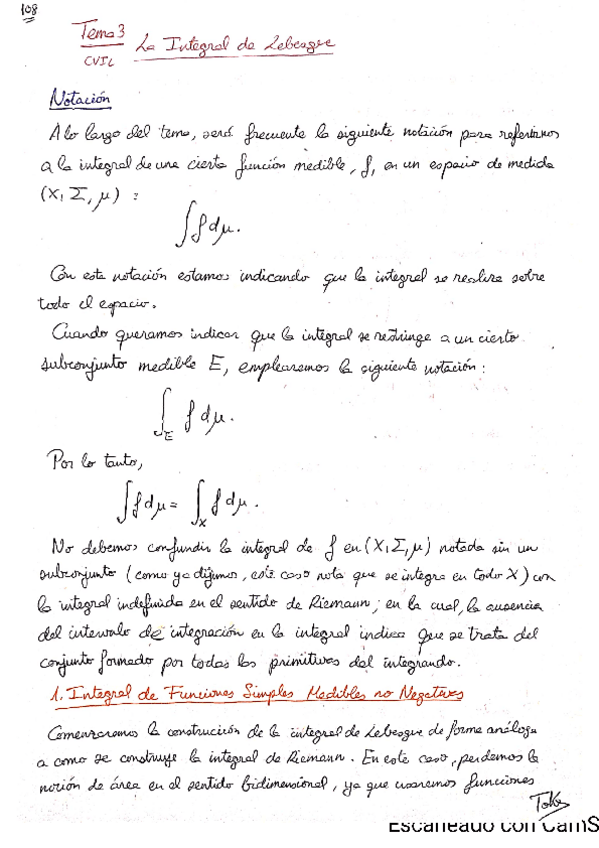 108
Tema 3
CVIL
La Integral de Lebesgue
Notación
A lo largo del tema, será frecuente la siguiente notación para referirnos
a la integral de una cierta función medible, f, en un espacio de medida
(X, Σ, μ) :
∫ f dμ.
Con esta notación estamos indicando que la integral se realiza sobre
todo el espacio.
Cuando queramos indicar que la integral se restringe a un cierto
subconjunto medible E, emplearemos la siguiente notación:
∫_E f dμ.
Por lo tanto,
∫ f dμ = ∫_X f dμ.
No debemos confundir la integral de f en (X, Σ, μ) notada sin un
subconjunto (como ya dijimos, este caso nota que se integra en todo X) con
la integral indefinida en el sentido de Riemann, en la cual, la ausencia
del intervalo de integración en la integral indica que se trata del
conjunto formado por todas las primitivas del integrando.
1. Integral de Funciones Simples Medibles no Negativas
Comenzaremos la construcción de la integral de Lebesgue de forma análoga
a como se construye la integral de Riemann. En este caso, perdemos la
noción de área en el sentido bidimensional, ya que usaremos funciones
Escaneado con CamS